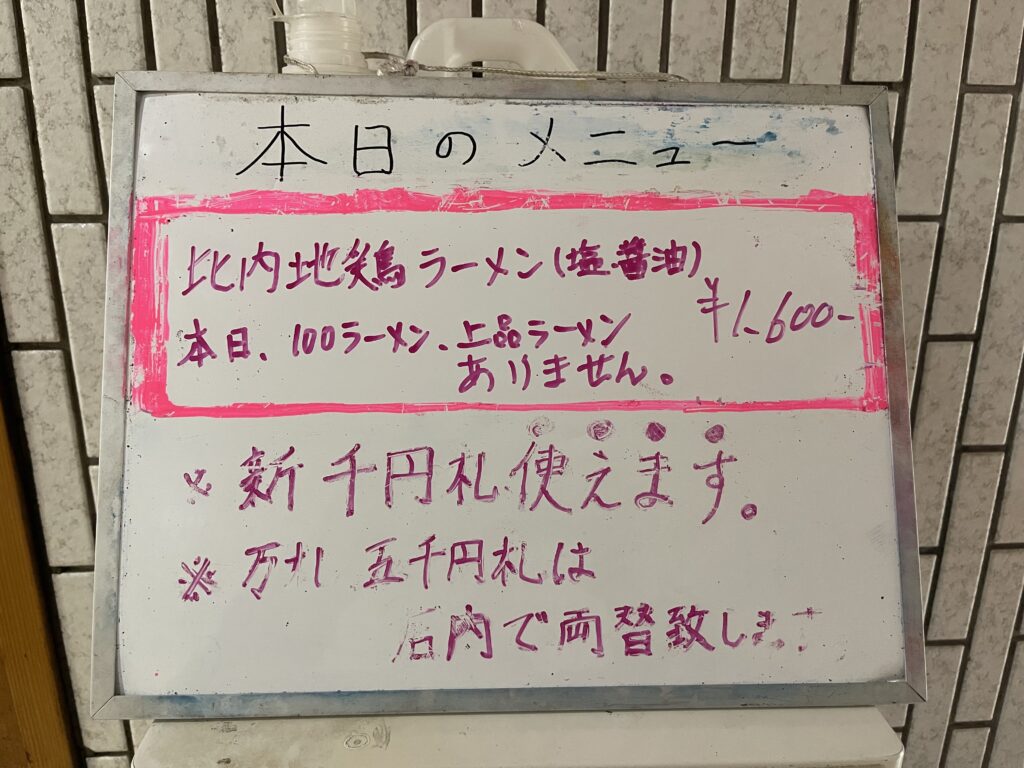 本日のメニュー
比内地鶏ラーメン(塩.醤油)
¥1,600-
本日、100ラーメン、上品ラーメン
ありません。
※新千円札使えます。
※万札 五千円札は
店内で両替致します